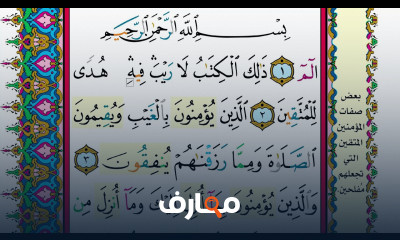 بِسْمِ اللَّهِ الرَّحْمَٰنِ الرَّحِيمِ
الٓمٓ ١ ذَٰلِكَ الْكِتَابُ لَا رَيْبَ فِيهِ هُدًى
لِّلْمُتَّقِينَ ٢ الَّذِينَ يُؤْمِنُونَ بِالْغَيْبِ وَيُقِيمُونَ
الصَّلَاةَ وَمِمَّا رَزَقْنَاهُمْ يُنفِقُونَ ٣
وَالَّذِينَ يُؤْمِنُونَ وَمَا أُنزِلَ مِن
بعض
صفات
المؤمنين
المتقين
التي
تجعلهم
مفلحين
معارف